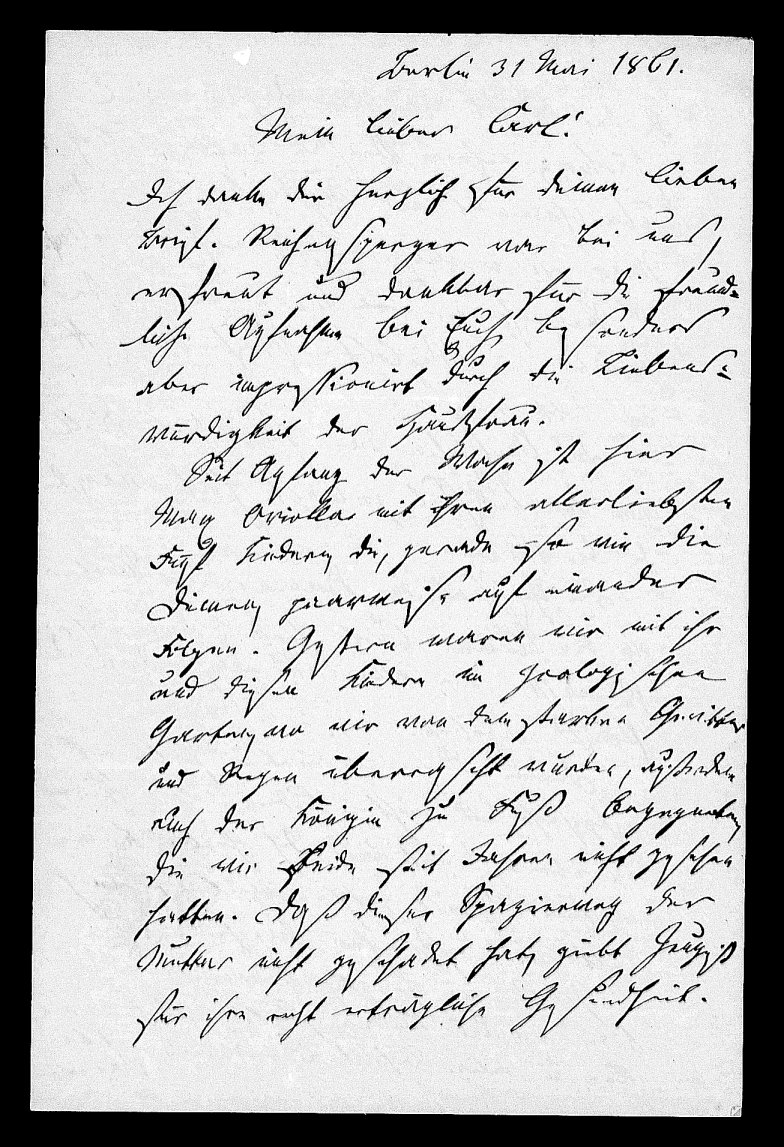 Berlin 31 Mai 1861.
Mein lieber Carl!
Ich danke dir herzlich für deinen lieben
Brief. Reichensperger war bei uns,
erfreut und dankbar für die freund=
liche Aufnahme bei Euch, besonders
aber impressionirt durch die Liebens=
würdigkeit der Hausfrau.
Seit Anfang der Woche ist hier
Max Oriolla mit ihren allerliebsten
Fünf Kindern, die, gerade so wie die
Deinen, paarweise auf einander
folgen. Gestern waren wir mit ihr
und diesen Kindern im zoologischen
Garten, wo wir von dem starken Gewitter
und Regen überrascht wurden, außerdem
auch der Königin zu Fuß begegneten,
die wir Beide seit Jahren nicht gesehen
hatten. Daß dieser Spazierweg der
Mutter nicht geschadet hat, giebt Zeugniß
für ihre recht erträgliche Gesundheit.